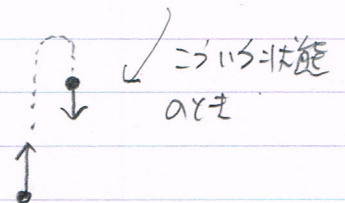 こういう状態
のとき